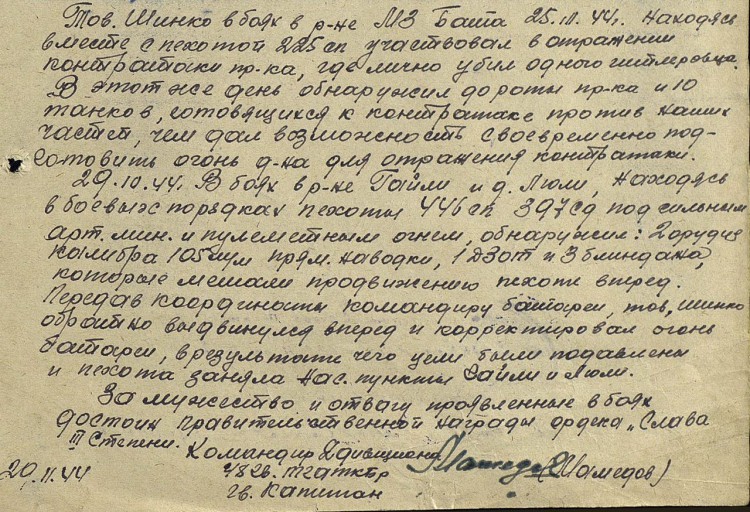 Тов. Шинко в боях в р-не МЗ Бата 25.10.44г. находясь
вместе с пехотой 225 сп участвовал в отражении
контратаки пр-ка, где лично убил одного гитлеровца.
В этот же день обнаружил до роты пр-ка и 10
танков, готовящихся к контратаке против наших
частей, чем дал возможность своевременно под-
готовить огонь д-на для отражения контратаки.
29.10.44г. В боях в р-не Гайли и д. Люли, находясь
в боевых порядках пехоты 446 сп 397 сд под сильным
арт. мин. и пулеметным огнем, обнаружил: 2 орудия
калибра 105 мм прям. наводки, 1 дзот и 3 блиндажа,
которые мешали продвижению пехоте вперед.
Передав координаты командиру батареи, тов. Шинко
обратно выдвинулся вперед и корректировал огонь
батареи, в результате чего цели были подавлены
и пехота заняла нас. пункты Гайли и Люли.
За мужество и отвагу проявленные в боях
достоин правительственной награды ордена „Слава
III Степени.
Командир 2 дивизиона
48 гв. тгаткбр
гв. Капитан
(Мамедов)
20.11.44